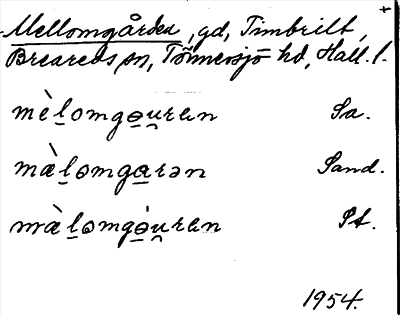 +
Mellomgården, gd, Timbrilt,
Breareds sn, Tönnersjö hd, Hall. l.
mè̱lomgə̱u̯rɛn Sa.
mæ̀ḻomga̱rən Sand.
mæ̀ḻəmgə̱u̯rɛn St.
1954.